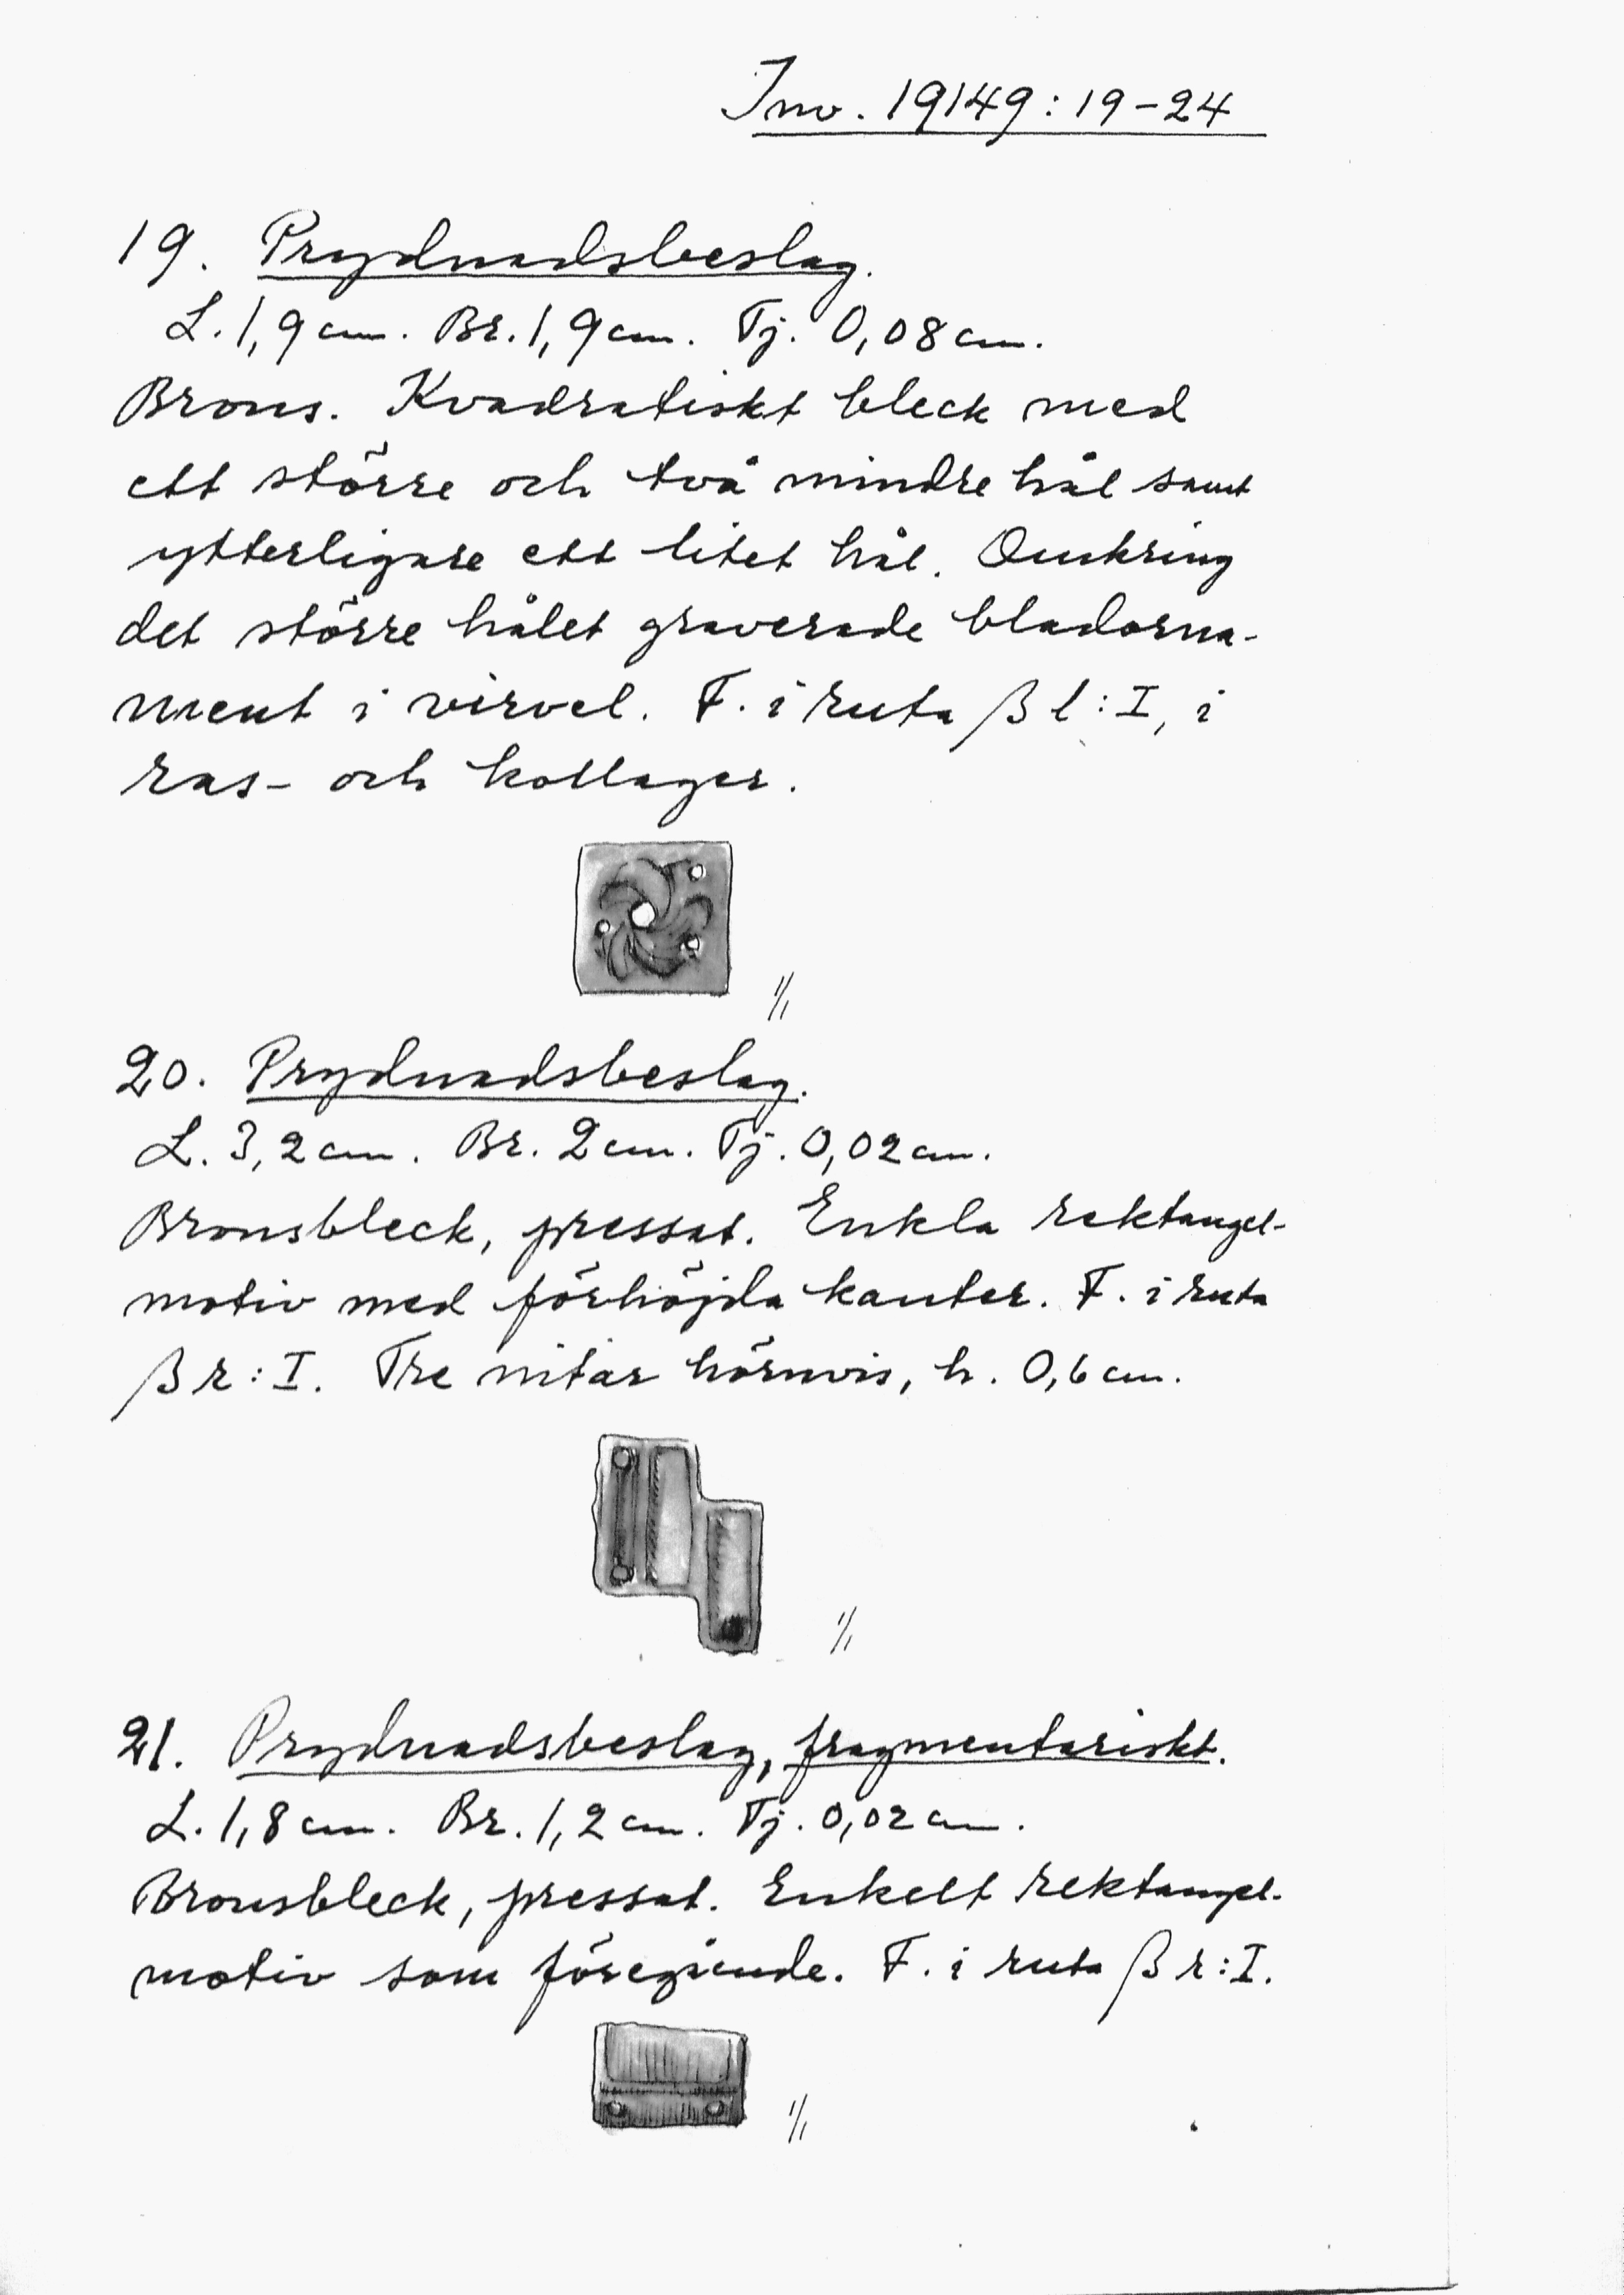 Inv. 19149:19-24
19. Prydnadsbeslag.
L. 1,9 cm. Br. 1,9 cm. Tj. 0,08 cm.
Brons. Kvadratiskt bleck med
ett större och två mindre hål samt
ytterligare ett litet hål. Omkring
det större hålet graverade bladorna-
ment i virvel. F. i ruta β l:I, i
ras- och kollager.
1/1
20. Prydnadsbeslag.
L. 3,2 cm. Br. 2 cm. Tj. 0,02 cm.
Bronsbleck, pressat. Enkla rektangel-
motiv med förhöjda kanter. F. i ruta
β r:I. Tre nitar hörnvis, h. 0,6 cm.
1/1
21. Prydnadsbeslag, fragmentariskt.
L. 1,8 cm. Br. 1,2 cm. Tj. 0,02 cm.
Bronsbleck, pressat. Enkelt rektangel-
motiv som föregående. F. i ruta β r:I.
1/1